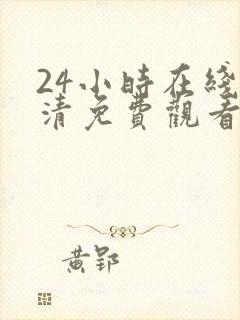 24小時在綫
清免費觀看
黃郢